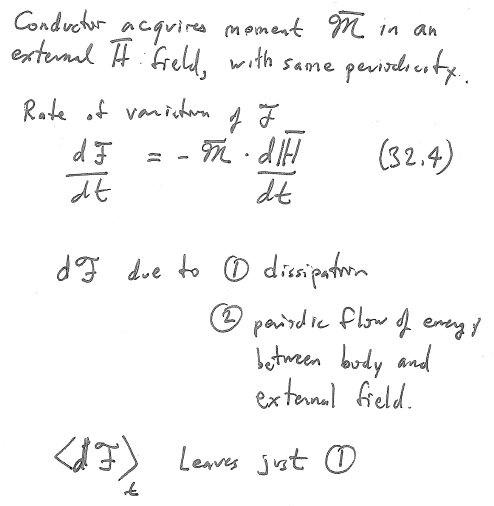 Conductor acquires moment 𝓜̄ in an
external H̄ field, with same periodicity.
Rate of variation of ℱ
dℱ/dt = - 𝓜̄ · dH̄/dt (32.4)
dℱ due to ① dissipation
② periodic flow of energy
between body and
external field.
⟨dℱ⟩_t Leaves just ①